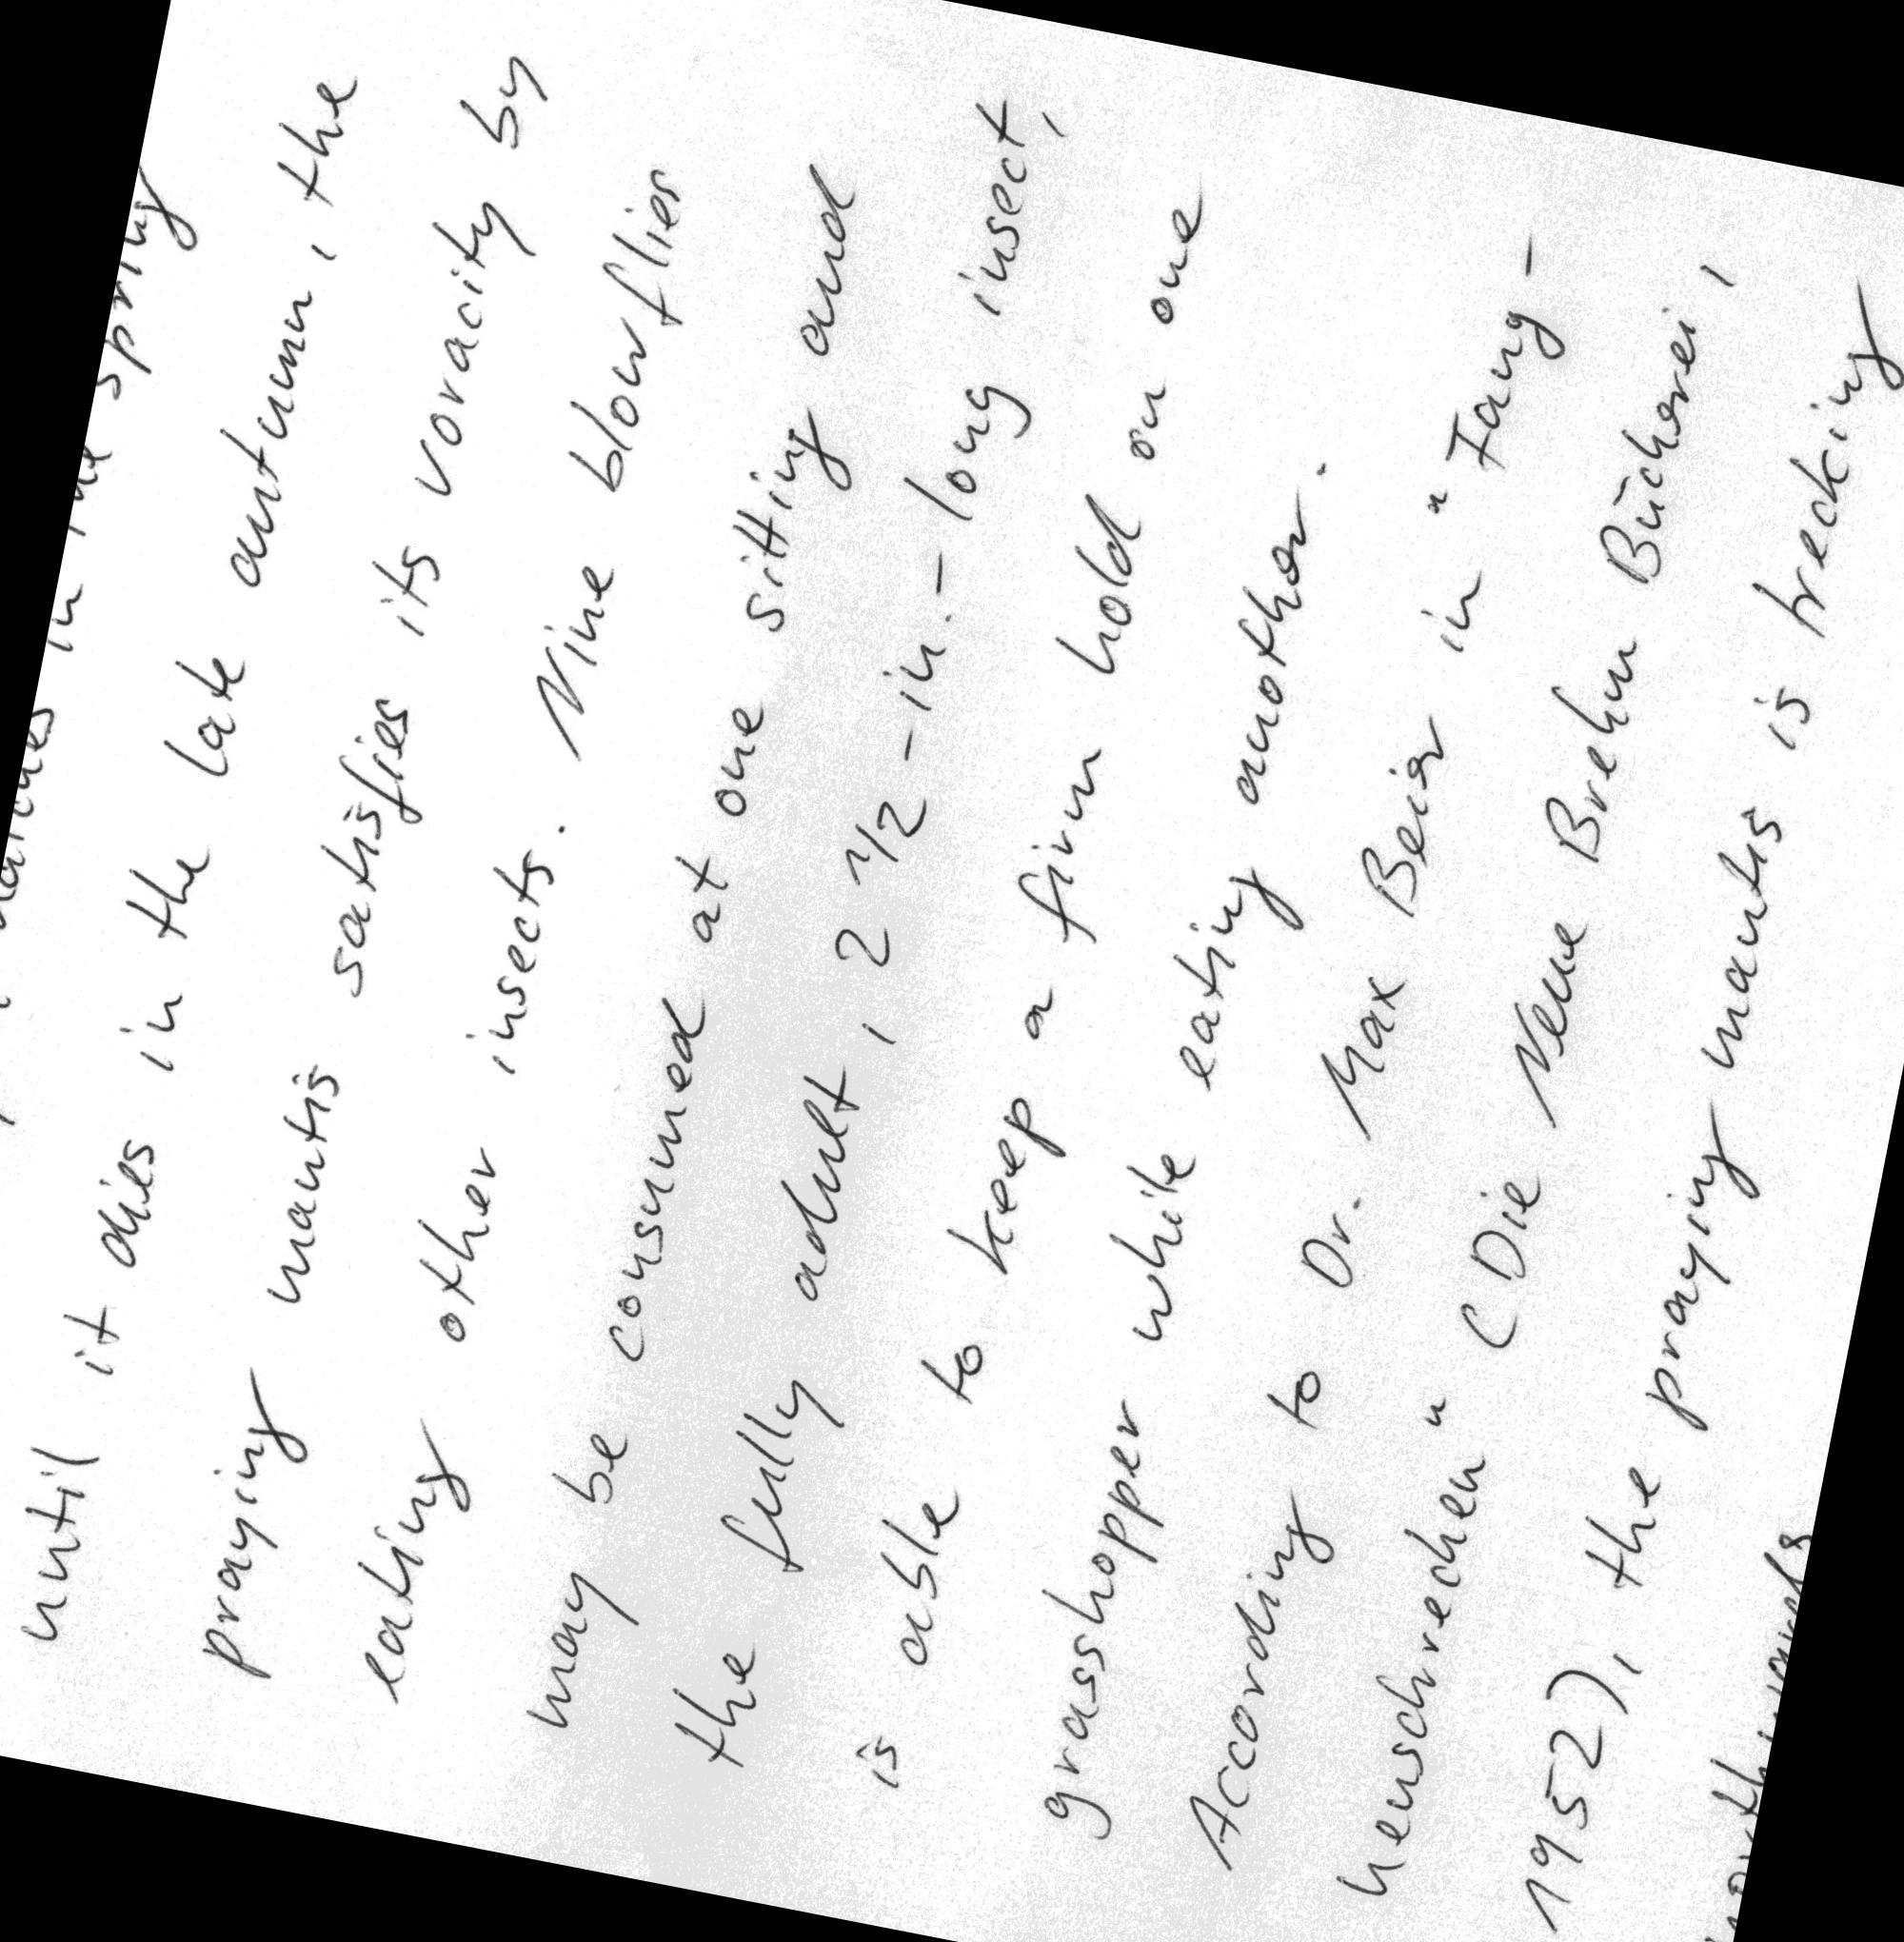 in the spring
until it dies in the late autumn, the
praying mantis satisfies its voracity by
eating other insects. Nine blowflies
may be consumed at one sitting and
the fully adult, 2 1/2-in.-long insect,
is able to keep a firm hold on one
grasshopper while eating another.
According to Dr. Max Beier in "Fang-
heuschrecken" (Die Neue Brehm Bücherei,
1952), the praying mantis is trecking
northwards